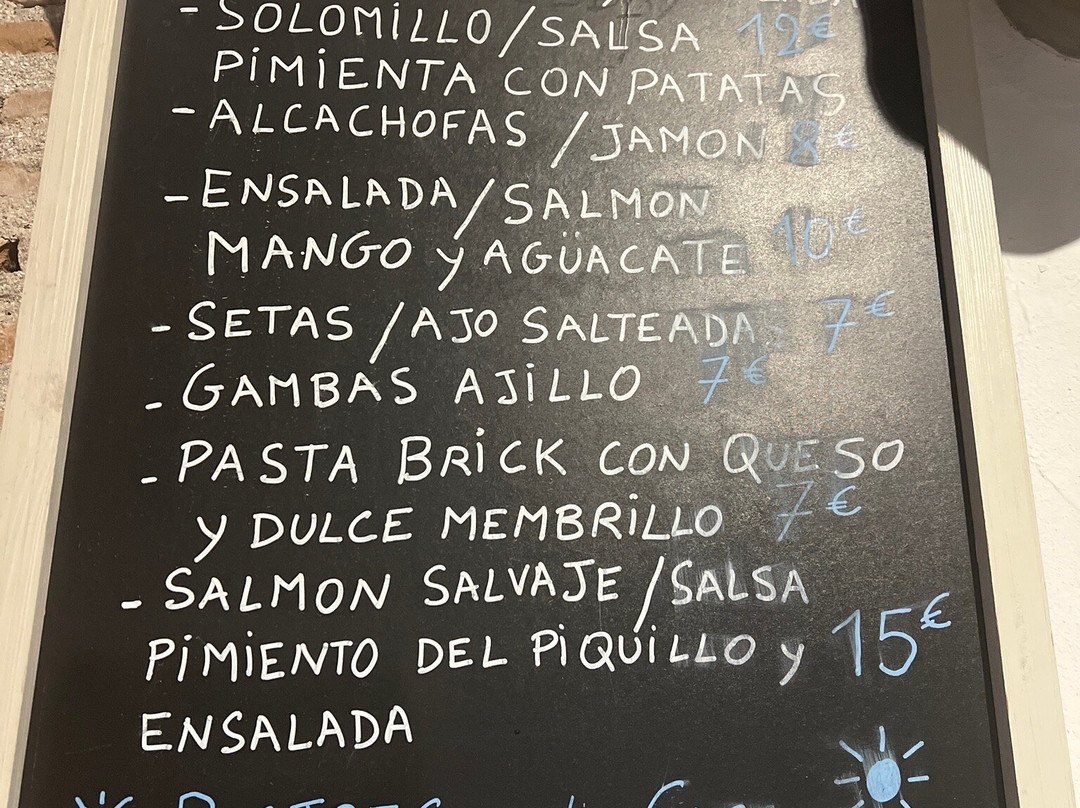 - SOLOMILLO/SALSA 12€
PIMIENTA CON PATATAS
- ALCACHOFAS / JAMON 8€
- ENSALADA/SALMON
MANGO y AGÜACATE 10€
- SETAS /AJO SALTEADAS 7€
- GAMBAS AJILLO 7€
- PASTA BRICK CON QUESO
y DULCE MEMBRILLO 7€
- SALMON SALVAJE/SALSA
PIMIENTO DEL PIQUILLO y 15€
ENSALADA